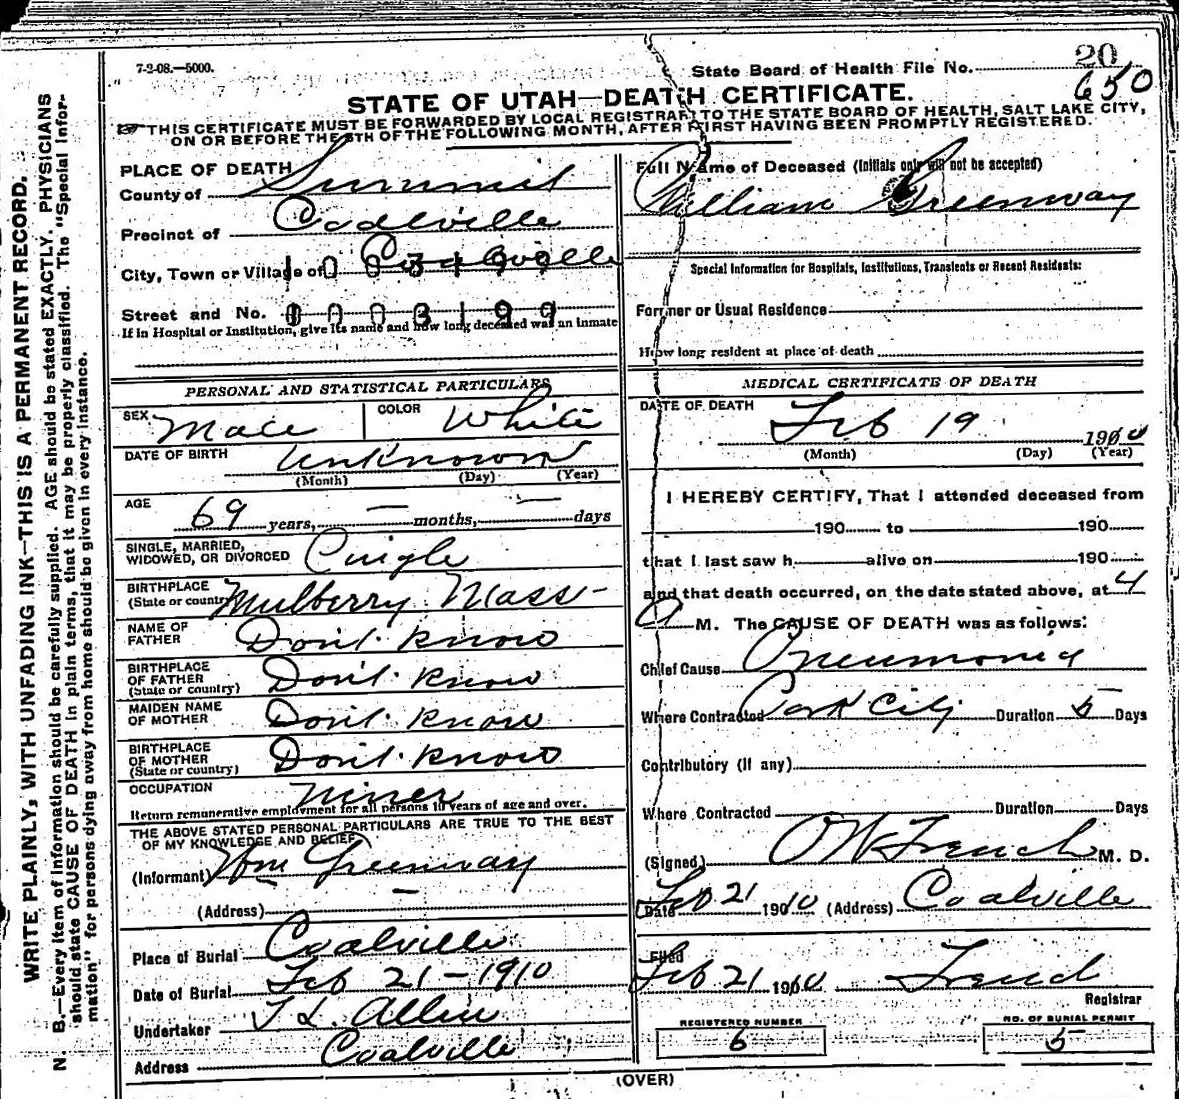 7-2-08.—5000.
20
State Board of Health File No.
650
STATE OF UTAH—DEATH CERTIFICATE.
THIS CERTIFICATE MUST BE FORWARDED BY LOCAL REGISTRAR TO THE STATE BOARD OF HEALTH, SALT LAKE CITY,
ON OR BEFORE THE 5TH OF THE FOLLOWING MONTH, AFTER FIRST HAVING BEEN PROMPTLY REGISTERED.
WRITE PLAINLY, WITH UNFADING INK—THIS IS A PERMANENT RECORD.
N. B.—Every item of information should be carefully supplied. AGE should be stated EXACTLY. PHYSICIANS
should state CAUSE OF DEATH in plain terms, that it may be properly classified. The "Special Infor-
mation" for persons dying away from home should be given in every instance.
PLACE OF DEATH
County of Summit
Precinct of Coalville
City, Town or Village of Coalville
Street and No. 0003199
If in Hospital or Institution, give its name and how long deceased was an inmate
PERSONAL AND STATISTICAL PARTICULARS
SEX Male COLOR White
DATE OF BIRTH Unknown
(Month) (Day) (Year)
AGE 69 years, — months, — days
SINGLE, MARRIED,
WIDOWED, OR DIVORCED Cingle
BIRTHPLACE
(State or country) Mulberry Mass-
NAME OF
FATHER Don't Know
BIRTHPLACE
OF FATHER
(State or country) Don't Know
MAIDEN NAME
OF MOTHER Don't Know
BIRTHPLACE
OF MOTHER
(State or country) Don't Know
OCCUPATION Miner
Return remunerative employment for all persons 10 years of age and over.
THE ABOVE STATED PERSONAL PARTICULARS ARE TRUE TO THE BEST
OF MY KNOWLEDGE AND BELIEF
(Informant) Wm Greenway
(Address) —
Place of Burial Coalville
Date of Burial Feb 21-1910
Undertaker T L Allen
Address Coalville
Full Name of Deceased (Initials only will not be accepted)
William Greenway
Special Information for Hospitals, Institutions, Transients or Recent Residents:
Former or Usual Residence
How long resident at place of death
MEDICAL CERTIFICATE OF DEATH
DATE OF DEATH
Feb 19 1910
(Month) (Day) (Year)
I HEREBY CERTIFY, That I attended deceased from
190 to 190
that I last saw h alive on 190
and that death occurred, on the date stated above, at 4
A M. The CAUSE OF DEATH was as follows:
Chief Cause Pneumonia
Where Contracted Park City Duration 5 Days
Contributory (If any)
Where Contracted Duration Days
(Signed) O W French M. D.
Date Feb 21 1910 (Address) Coalville
Filed
Feb 21 1910 French
Registrar
REGISTERED NUMBER
6
NO. OF BURIAL PERMIT
5
(OVER)